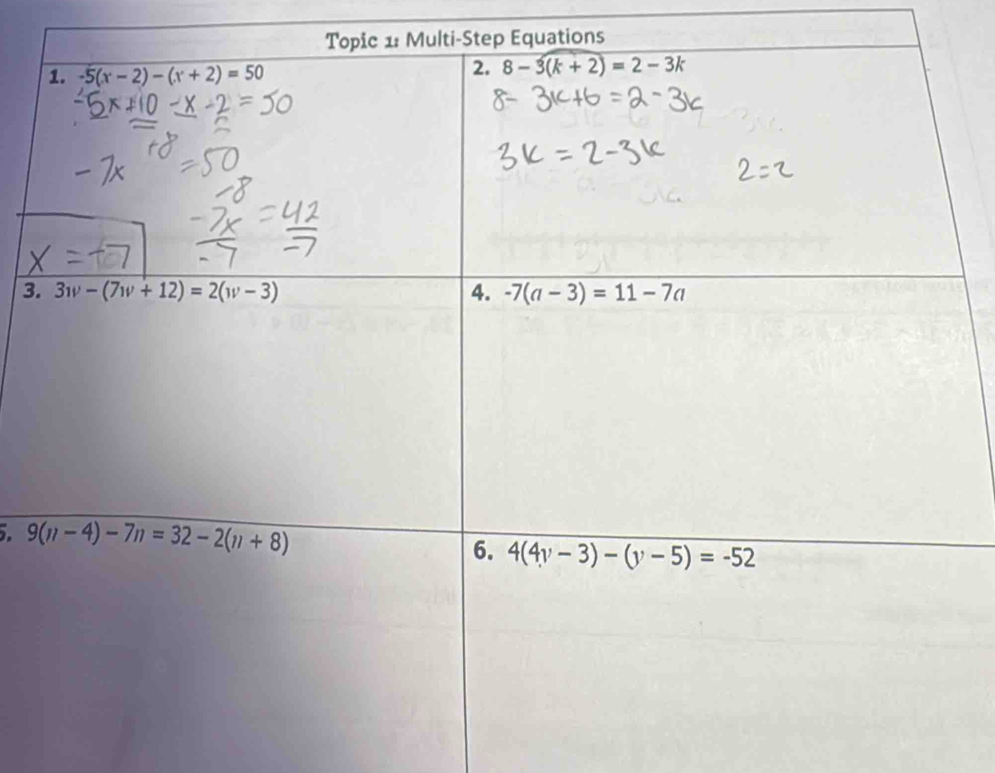 Topic 1: Multi-Step Equations
1. -5(x - 2) - (x + 2) = 50
-5x +10 -x -2 = 50
-7x +8 = 50
-8
-7x = 42
-7 -7
x = -7
2. 8 - 3(k + 2) = 2 - 3k
8- 3k+6 = 2 - 3k
3k = 2-3k
2=2
3. 3w - (7w + 12) = 2(w - 3)
4. -7(a - 3) = 11 - 7a
5. 9(n - 4) - 7n = 32 - 2(n + 8)
6. 4(4y - 3) - (y - 5) = -52